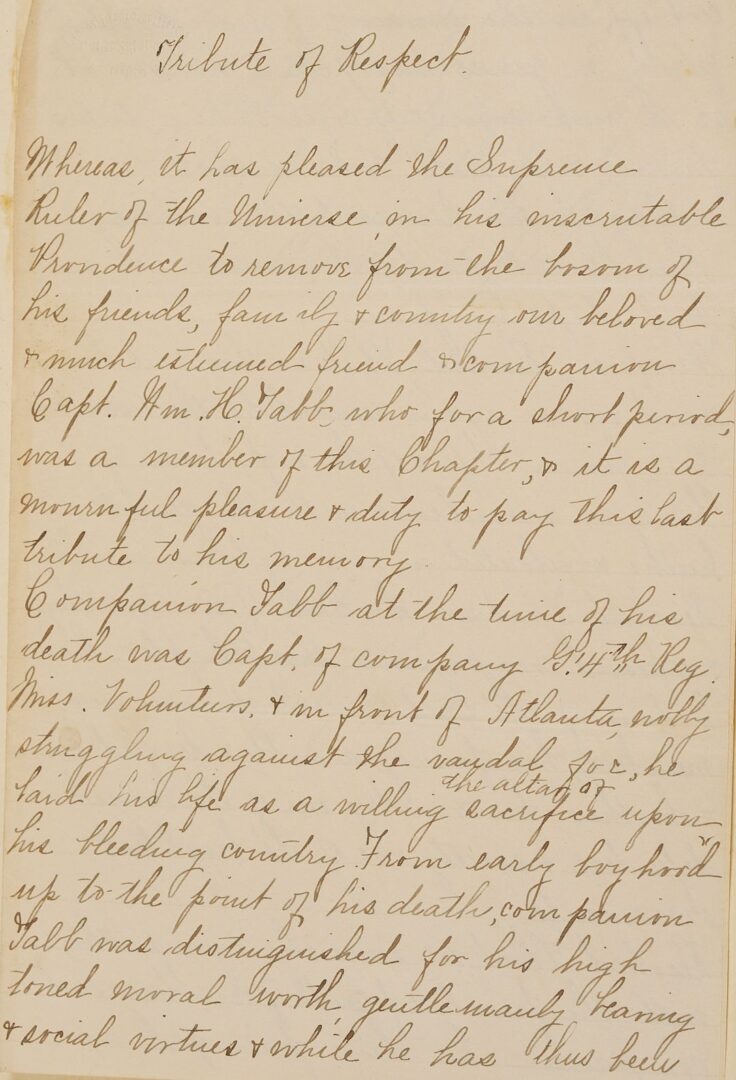 Tribute of Respect.
Whereas, it has pleased the Supreme
Ruler of the Universe, in his inscrutable
Providence to remove from the bosom of
his friends, family & country our beloved
& much esteemed friend & companion
Capt. Wm. H. Tabb, who for a short period,
was a member of this Chapter, & it is a
mournful pleasure & duty to pay this last
tribute to his memory.
Companion Tabb at the time of his
death was Capt. of company G. 4th Reg.
Miss. Volunteers, & in front of Atlanta, nobly
struggling against the vandal foe, he
the altar of
laid his life as a willing sacrifice upon
his bleeding country. From early boyhood
up to the point of his death, companion
Tabb was distinguished for his high
toned moral worth, gentlemanly bearing
& social virtues & while he has thus been